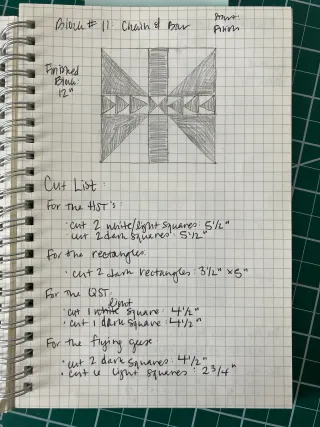 Block # 11: Chain & Bow
Finished
Block:
12"
Cut List:
For the HST's:
• cut 2 white/light squares: 5 1/2"
• cut 2 dark squares: 5 1/2"
For the rectangles:
• cut 2 dark rectangles: 3 1/2" x 5"
For the QST:
light
• cut 1 white square: 4 1/2"
• cut 1 dark square: 4 1/2"
For the flying geese
• cut 2 dark squares: 4 1/2"
• cut light squares: 2 3/4"